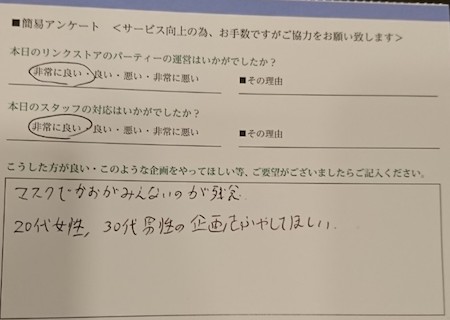 ■簡易アンケート ＜サービス向上の為、お手数ですがご協力をお願い致します＞
本日のリンクストアのパーティーの運営はいかがでしたか？
非常に良い・良い・悪い・非常に悪い ■その理由
本日のスタッフの対応はいかがでしたか？
非常に良い・良い・悪い・非常に悪い ■その理由
こうした方が良い・このような企画をやってほしい等、ご要望がございましたらご記入ください。
マスクでかおがみえないのが残念
20代女性, 30代男性の企画をふやしてほしい.